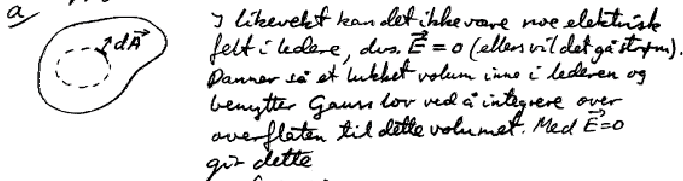 a
dA⃗
I likevekt kan det ikke være noe elektrisk
felt i ledere, dvs. E⃗ = 0 (ellers vil det gå strøm).
Danner så et lukket volum inne i lederen og
benytter Gauss lov ved å integrere over
overflaten til dette volumet. Med E⃗=0
gir dette